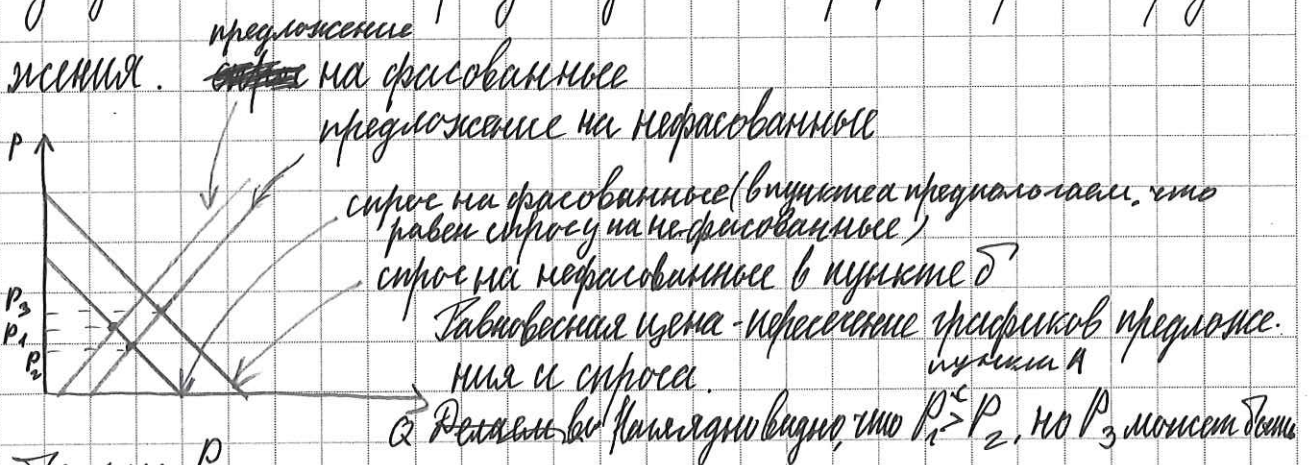 предложение
жения. спрос на фасованные
предложение на нефасованные
P
спрос на фасованные (в пункте а предполагаем, что
равен спросу на нефасованные)
спрос на нефасованные в пункте б
P3
Равновесная цена - пересечение графиков предложе-
P1
P2
ния и спроса.
пункт А
Q Наглядно видно, что P1 > P2, но P3 может быть
P